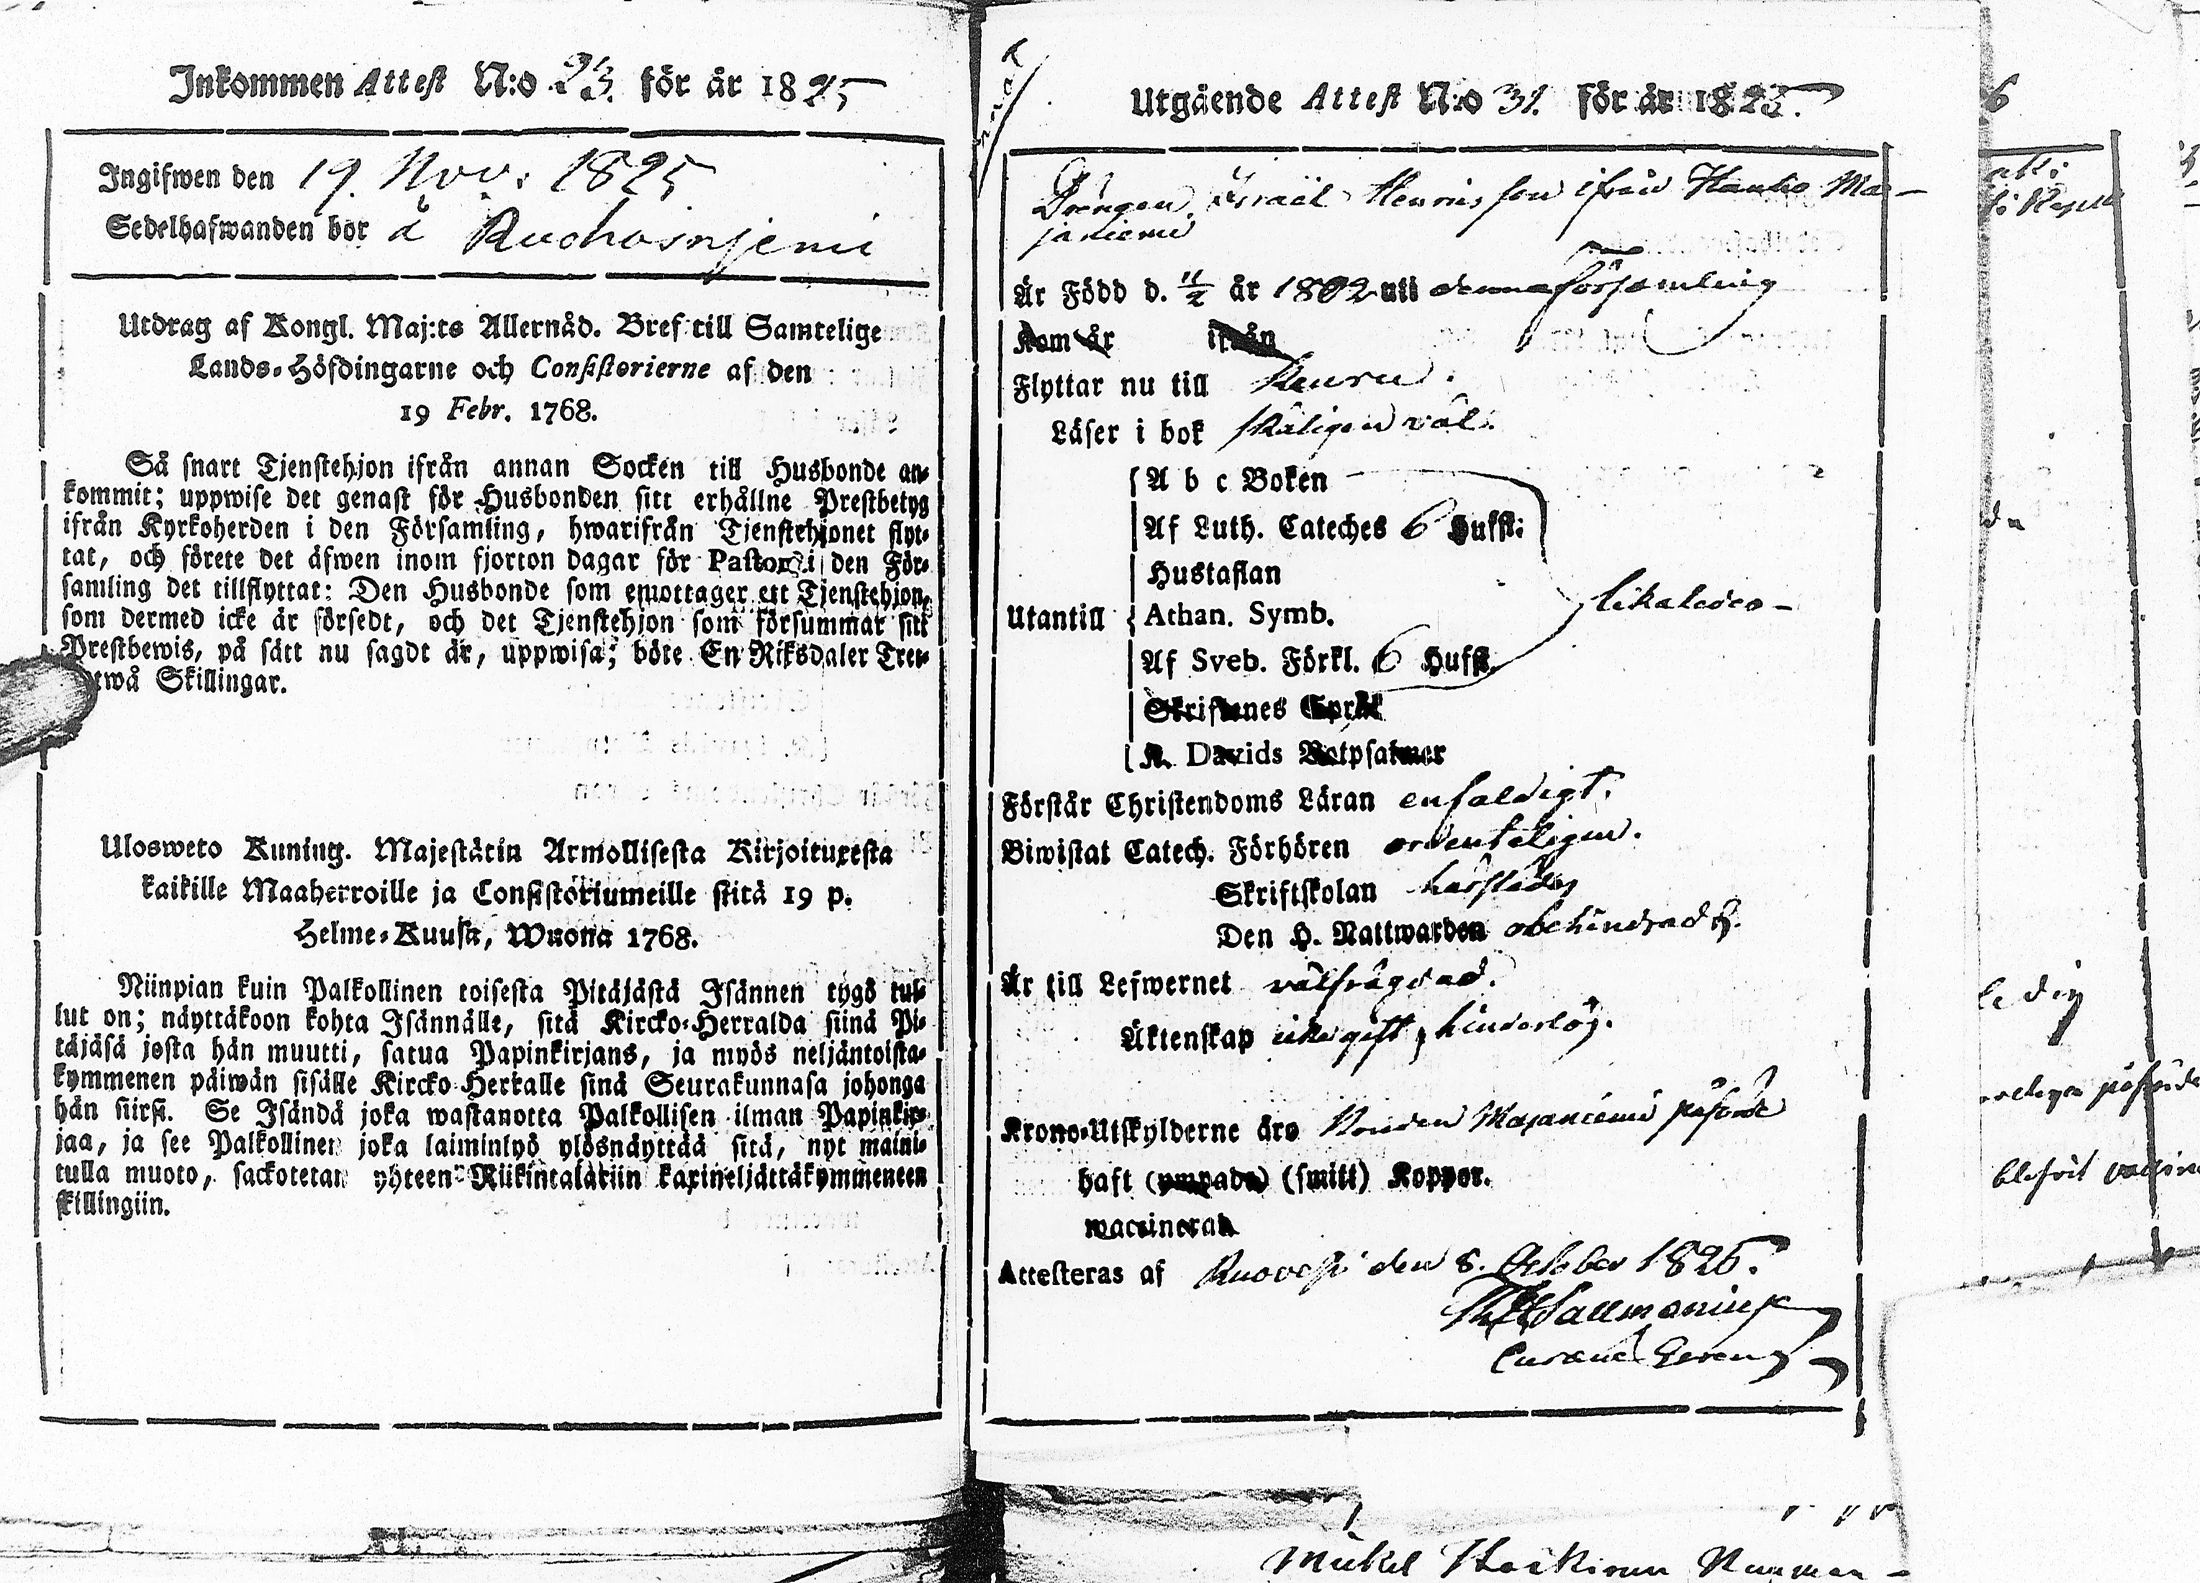 Inkommen Attest N:o 23. för år 1825
Ingifwen den 19. Nov. 1825
Sedelhafwanden bor å Ruchosnjemi
Utdrag af Kongl. Maj:ts Allernåd. Bref till Samtelige
Lands-Höfdingarne och Consistorierne af den
19 Febr. 1768.
Så snart Tjenstehjon ifrån annan Socken till Husbonde an-
kommit; uppwise det genast för Husbonden sitt erhållne Prestbetyg
ifrån Kyrkoherden i den Församling, hwarifrån Tjenstehjonet flyt-
tat, och förete det äfwen inom fjorton dagar för Pastor i den För-
samling det tillflyttat: Den Husbonde som emottager ett Tjenstehjon,
som dermed icke är försedt, och det Tjenstehjon som försummar sitt
Prestbewis, på sätt nu sagdt är, uppwisa; böte En Riksdaler Tret-
twå Skillingar.
Ulosweto Kuning. Majestätin Armollisesta Kirjoituxesta
kaikille Maaherroille ja Consistoriumeille siitä 19 p.
Helme-Kuusa, Wuona 1768.
Niinpian kuin Palkollinen toisesta Pitäjästä Isännen tygö tul-
lut on; näyttäkoon kohta Isännälle, sitä Kircko-Herralda siinä Pi-
täjäsä josta hän muutti, satua Papinkirjans, ja myös neljäntoista-
kymmenen päiwän sisälle Kircko-Herralle sinä Seurakunnasa johonga
hän siirsi. Se Isändä joka wastanotta Palkollisen ilman Papinkir-
jaa, ja see Palkollinen joka laiminlyö ylösnäyttää sitä, nyt maini-
tulla muoto, sackotetan yhteen Riikintalariin kaxineljättäkymmeneen
skillingiin.
Utgående Attest N:o 31. för år 1825.
Drängen Israël Henrics son ifrån Hanho Ma-
janiemi
Är Född d. 11/2 år 1802 uti denna församling
Kom år ifrån
Flyttar nu till Keuru.
Läser i bok skäligen väl.
Utantill
A b c Boken
Af Luth. Cateches 6 Hufst:
Hustaflan
Athan. Symb.
Af Sveb. Förkl. 6 Hufst.
likaledes
Skriftenes Språk
K. Davids Botpsalmer
Förstår Christendoms Läran enfaldigt.
Biwistat Catech. Förhören ordenteligen.
Skriftskolan härstädes
Den H. Nattwarden obehindradt.
Är till Lefwernet välfrägdad.
Äktenskap icke gift, hinderlös.
Krono-Utskylderne äro Majaniemi påförde
haft (ympade) (smitt) Koppor.
waccinerad
Attesteras af Ruovesi den 8. October 1825.
Sallmenius
Mickel